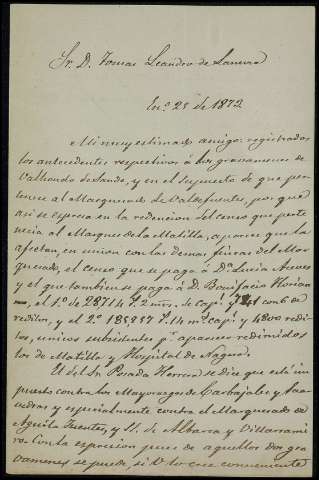 Sr. D. Tomas Leandro de
En.º 25 de 1872
Mi muy estimado amigo: registrados
los antecedentes respectivos á los gravamenes de
Valhondo de Sande, y en el supuesto de que per-
tenece al Marquesado de Valdefuentes, por que
asi se espresa en la redencion del censo que perte
necia al Marques de la Matilla, aparece que lo
afectan, en union con las demas fincas del Mar-
quesado, el censo que se paga á Dª Luisa
y el que tambien se paga á D. Bonifacio
el 1º de 28714 r. 2 mrs. de cap.l y con 6 de
reditos, y el 2º 14 m.s cap.l y 4800 redi-
tos, unicos subsistentes p.r aparecer redimidos
los de Matilla y Hospital de
El del Sr. Posada Herrera se dice que está im
puesto contra los Mayorazgos de Carbajales y Saa-
vedras y especialmente contra el Marquesado de
Aguila Fuentes, y SS. de Albarca y Villarrami
ro. Con la espresion pues de aquellos dos gra
vamenes se puede, si V. lo cree conveniente